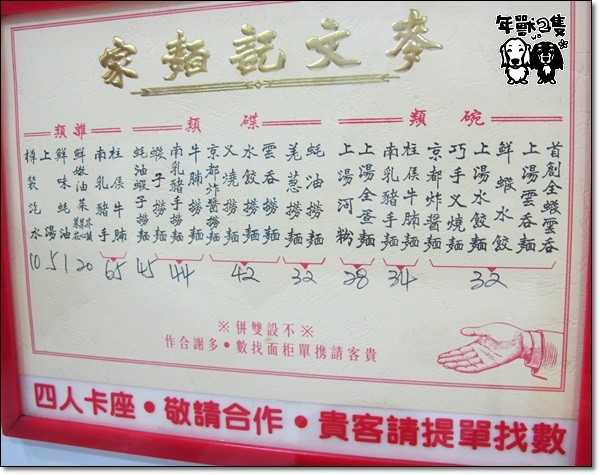 年獸2隻
麥文記麵家
碗類
首創全蝦雲吞
上湯雲吞麵
鮮蝦水餃
上湯水餃麵
巧手叉燒麵
京都炸醬麵
32
柱侯牛腩麵
南乳豬手麵
34
上湯全蛋麵
上湯河粉
28
碟類
蚝油撈麵
羗葱撈麵
32
雲吞撈麵
水餃撈麵
叉燒撈麵
京都炸醬撈麵
42
牛腩撈麵
南乳豬手撈麵
44
蝦子撈麵
蚝油蝦子撈麵
45
雜類
柱侯牛腩
南乳豬手
65
鮮嫩油菜
20
鮮味蚝油
1
上湯
5
樽裝汽水
10
※不設雙併※
貴客請携單柜面找數•多謝合作
四人卡座•敬請合作•貴客請提單找數